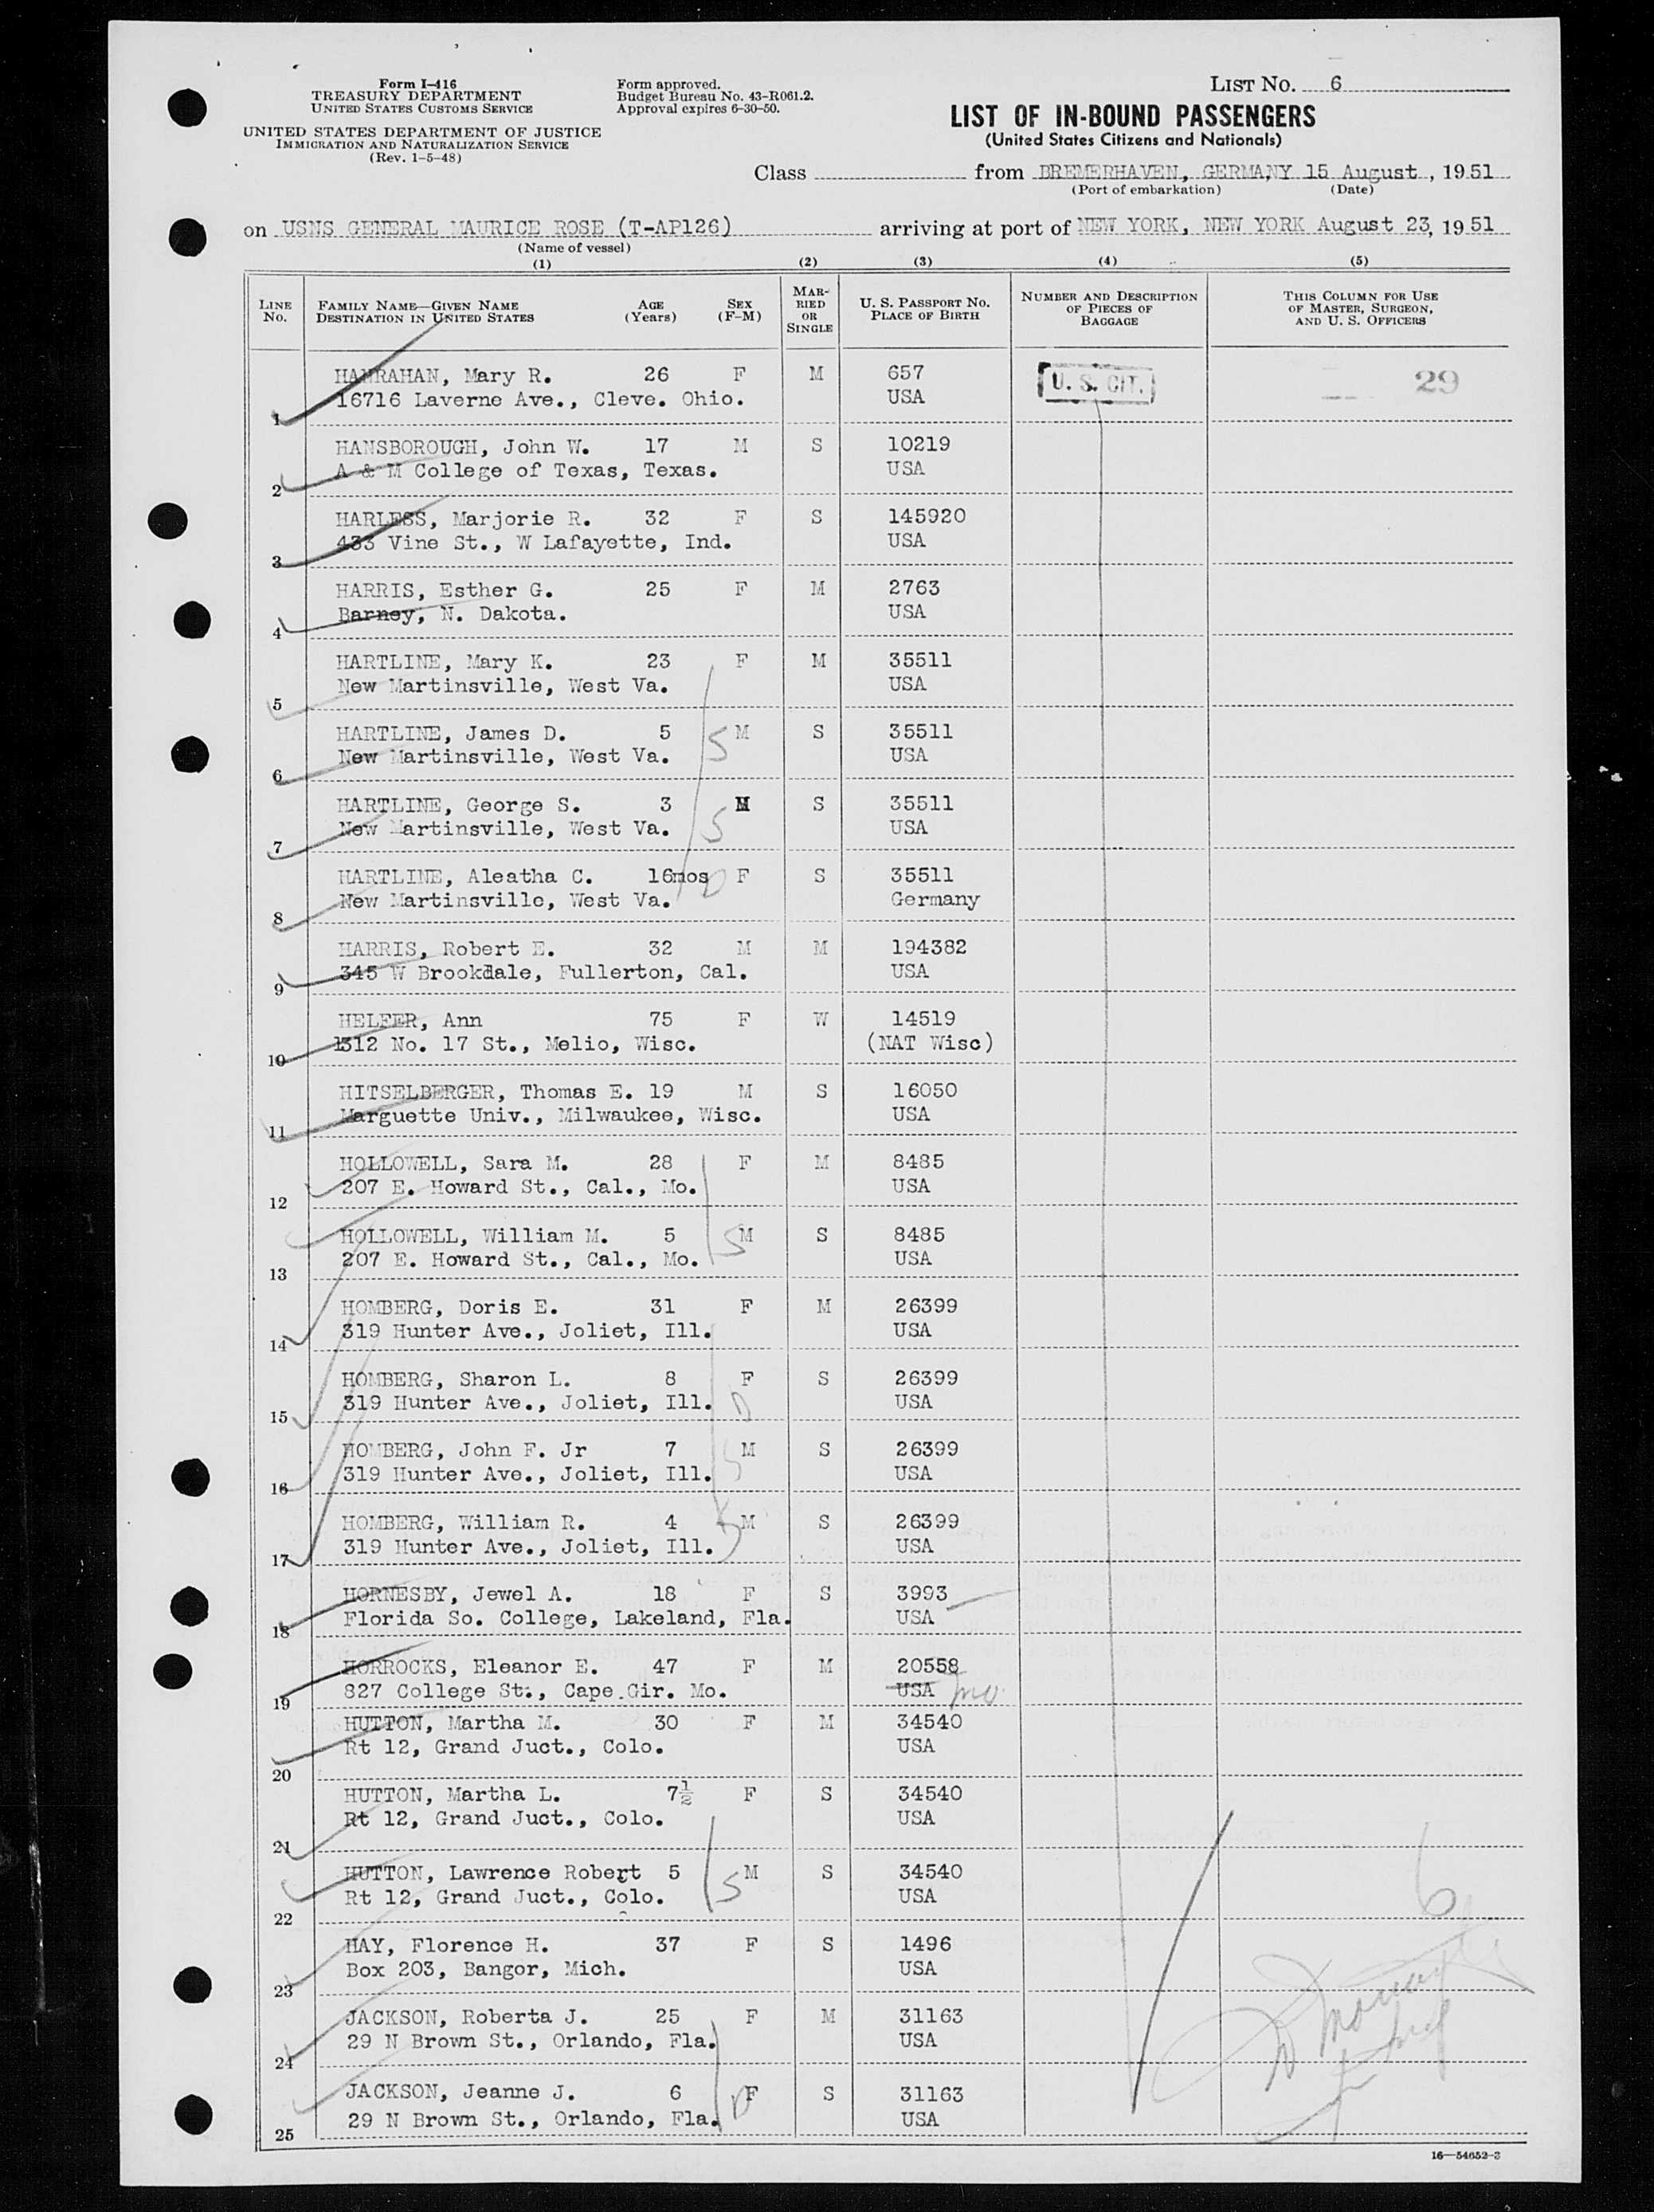 Form I-416
TREASURY DEPARTMENT
UNITED STATES CUSTOMS SERVICE
UNITED STATES DEPARTMENT OF JUSTICE
IMMIGRATION AND NATURALIZATION SERVICE
(Rev. 1-5-48)
Form approved.
Budget Bureau No. 43-R061.2.
Approval expires 6-30-50.
LIST NO. 6
LIST OF IN-BOUND PASSENGERS
(United States Citizens and Nationals)
Class from BREMERHAVEN, GERMANY 15 August, 1951
(Port of embarkation) (Date)
on USNS GENERAL MAURICE ROSE (T-AP126) arriving at port of NEW YORK, NEW YORK August 23, 1951
(Name of vessel)
(1) (2) (3) (4) (5)
LINE NO. FAMILY NAME—GIVEN NAME DESTINATION IN UNITED STATES AGE (Years) SEX (F-M) MARRIED OR SINGLE U. S. PASSPORT NO. PLACE OF BIRTH NUMBER AND DESCRIPTION OF PIECES OF BAGGAGE THIS COLUMN FOR USE OF MASTER, SURGEON, AND U. S. OFFICERS
HANRAHAN, Mary R. 26 F M 657 U. S. CIT. 29
16716 Laverne Ave., Cleve. Ohio. USA
1
HANSBOROUGH, John W. 17 M S 10219
A & M College of Texas, Texas. USA
2
HARLESS, Marjorie R. 32 F S 145920
433 Vine St., W Lafayette, Ind. USA
3
HARRIS, Esther G. 25 F M 2763
Barney, N. Dakota. USA
4
HARTLINE, Mary K. 23 F M 35511
New Martinsville, West Va. USA
5
HARTLINE, James D. 5 S M S 35511
New Martinsville, West Va. USA
6
HARTLINE, George S. 3 S M S 35511
New Martinsville, West Va. USA
7
HARTLINE, Aleatha C. 16mos D F S 35511
New Martinsville, West Va. Germany
8
HARRIS, Robert E. 32 M M 194382
345 W Brookdale, Fullerton, Cal. USA
9
HELFER, Ann 75 F W 14519
1312 No. 17 St., Melio, Wisc. (NAT Wisc)
10
HITSELBERGER, Thomas E. 19 M S 16050
Marguette Univ., Milwaukee, Wisc. USA
11
HOLLOWELL, Sara M. 28 F M 8485
207 E. Howard St., Cal., Mo. USA
12
HOLLOWELL, William M. 5 S M S 8485
207 E. Howard St., Cal., Mo. USA
13
HOMBERG, Doris E. 31 F M 26399
319 Hunter Ave., Joliet, Ill. USA
14
HOMBERG, Sharon L. 8 F S 26399
319 Hunter Ave., Joliet, Ill. D USA
15
HOMBERG, John F. Jr 7 S M S 26399
319 Hunter Ave., Joliet, Ill. USA
16
HOMBERG, William R. 4 S M S 26399
319 Hunter Ave., Joliet, Ill. USA
17
HORNESBY, Jewel A. 18 F S 3993
Florida So. College, Lakeland, Fla. USA
18
HORROCKS, Eleanor E. 47 F M 20558
827 College St., Cape Gir. Mo. USA mo.
19
HUTTON, Martha M. 30 F M 34540
Rt 12, Grand Juct., Colo. USA
20
HUTTON, Martha L. 7½ F S 34540
Rt 12, Grand Juct., Colo. USA
21
HUTTON, Lawrence Robert 5 S M S 34540
Rt 12, Grand Juct., Colo. USA
22
6
HAY, Florence H. 37 F S 1496
Box 203, Bangor, Mich. USA
23
JACKSON, Roberta J. 25 F M 31163
29 N Brown St., Orlando, Fla. USA
24
JACKSON, Jeanne J. 6 D F S 31163
29 N Brown St., Orlando, Fla. USA
25
16—54652-3